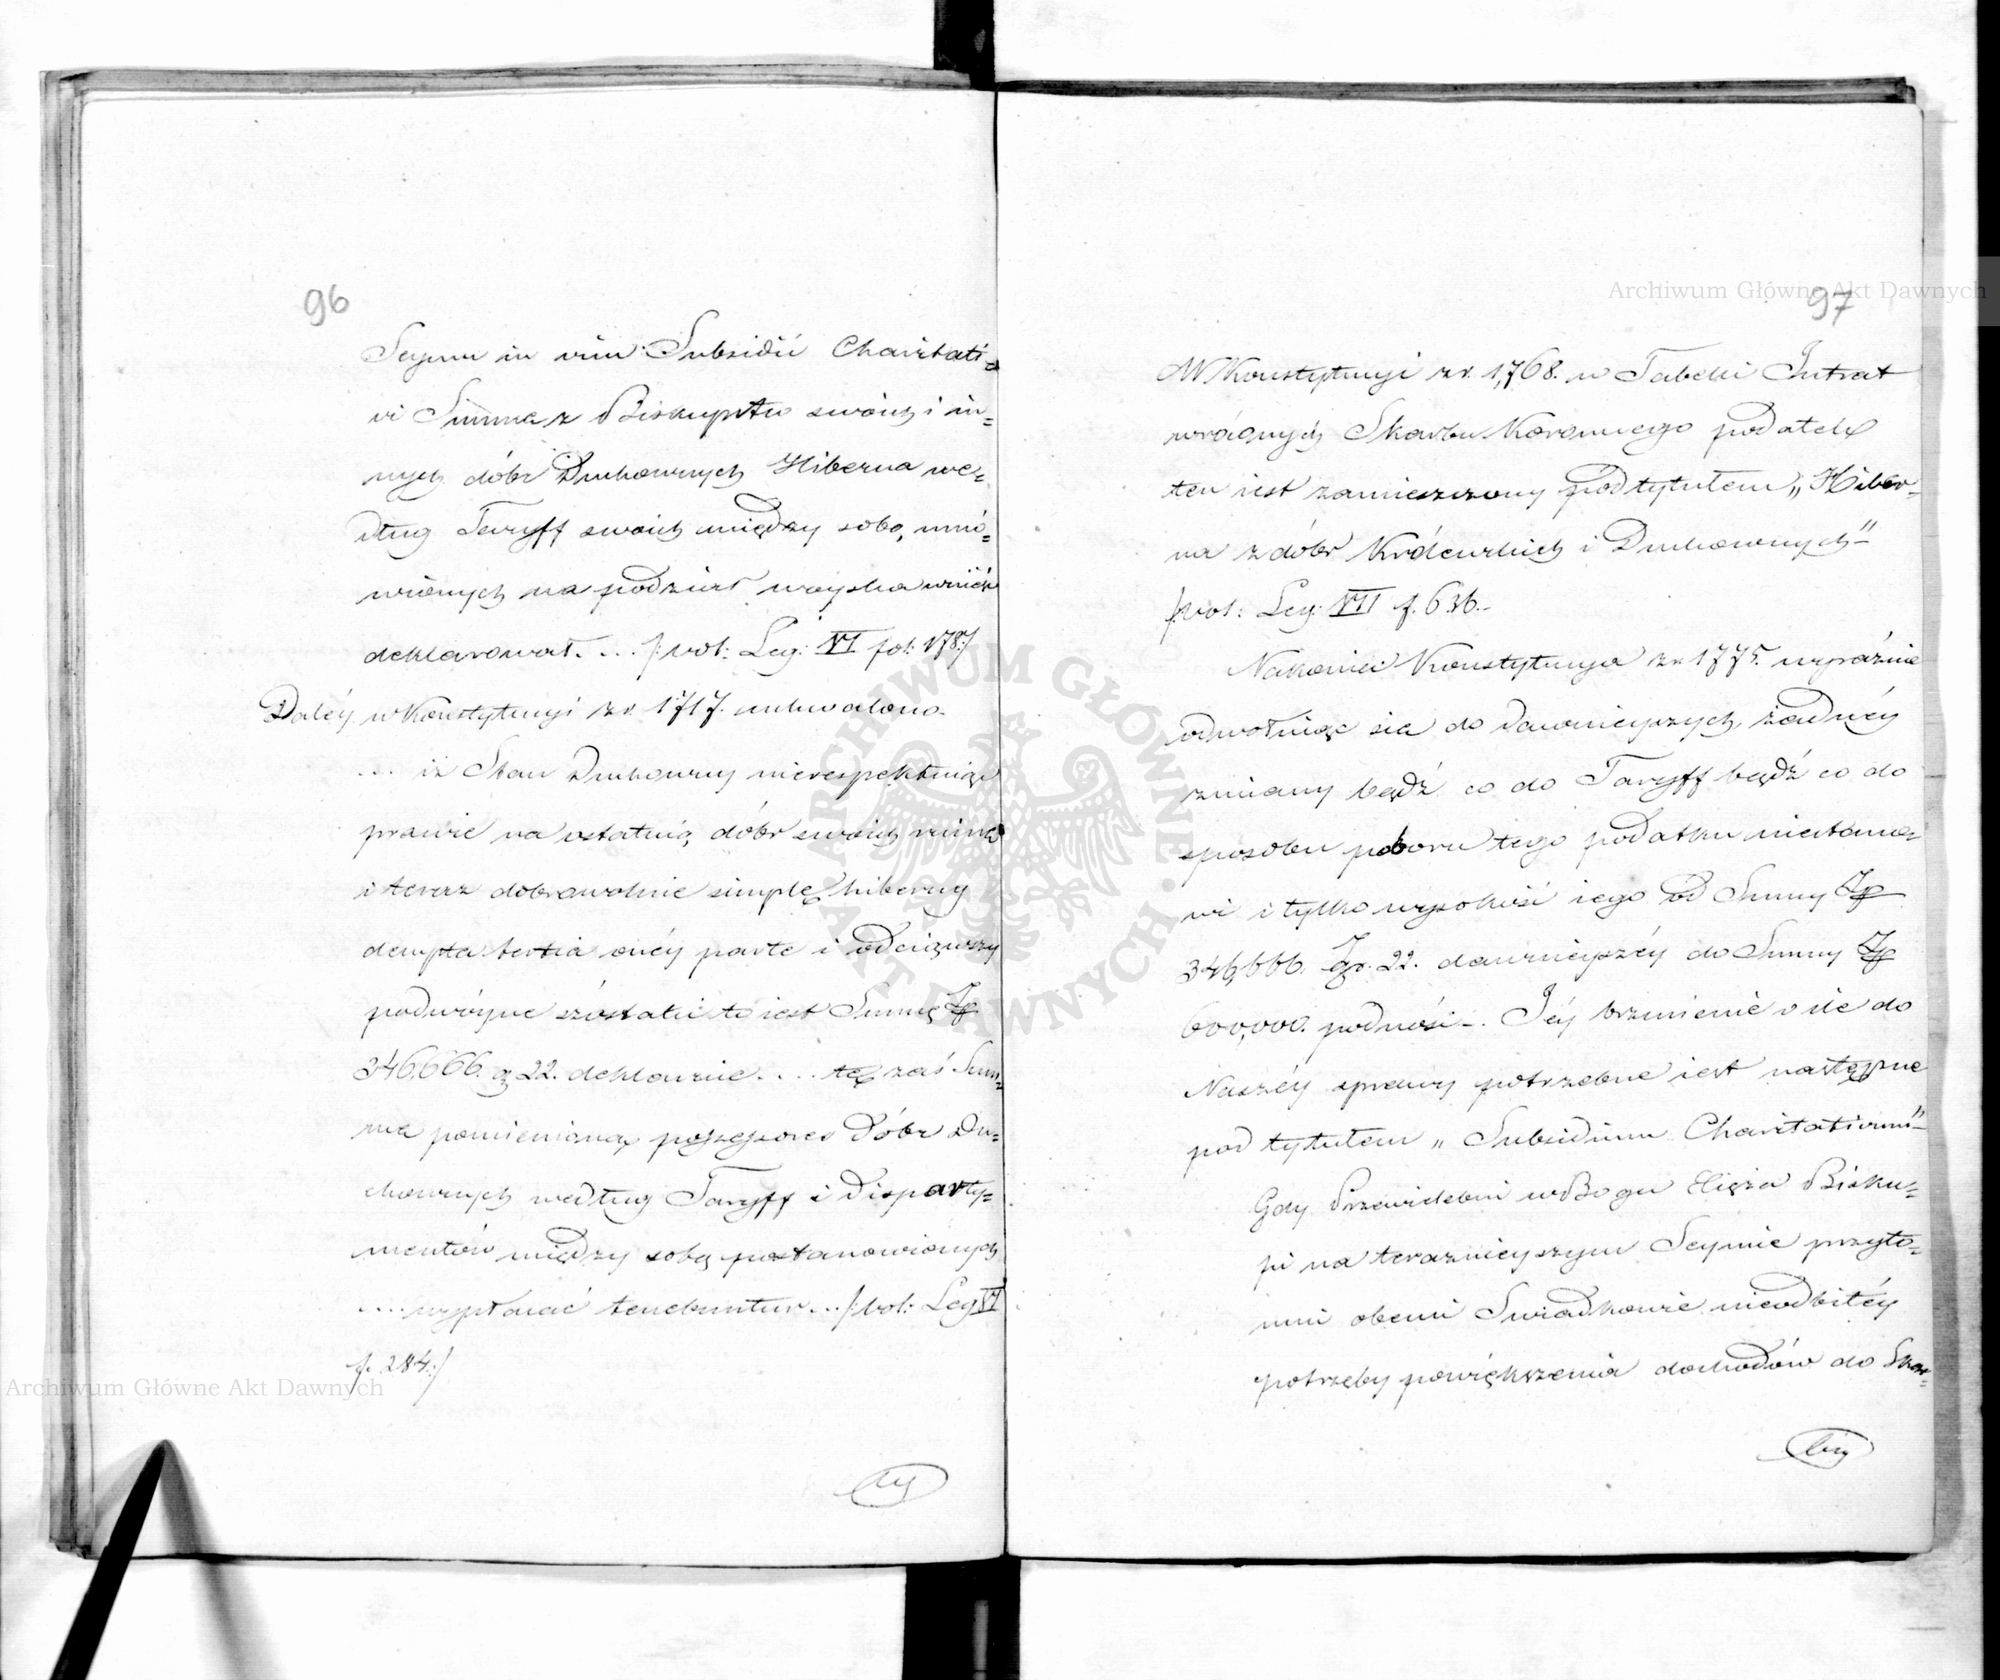 96
Seymu in vim Subsidii Charitati=
vi Summa z Biskupstw swoich i in=
nych dóbr Duchownych Hiberna we=
dług Taryff swoich między sobą umó=
wionych na podział woyska wnieść
deklarował. . . . /: vol: Leg: VI fol: 178:/
Daléy w Konstytucyi z r. 1717. uchwalono
. . . iż Stan Duchowny nierespektuiąc
prawie na ostatnią dóbr swoich ruinę
i teraz dobrowolnie simplę hiberny
dempta tertia onéy parte i odciąwszy
podwóyne szóstaki to iest Summę Zp
346.666. g 22. deklaruie. . . . tę zaś Sum=
ma pomienianą possessores Dóbr Du=
chownych według Taryff i disparty=
mentów między sobą postanowionych
. . . . wypłacać tenebuntur. . . /: vol: Leg VI
f. 284:/
97
W Konstytucyi z r. 1,768. w Tabelli Intrat
wrócionych Skarbu Koronnego podatek
ten iest zamieszczony pod tytułem „Hiber=
na z dóbr Królewskich i Duchownych"
/: vol: Leg: VII f. 636.
Nakoniec Konstytucya z r. 1775. wyraźnie
odwołuiąc sie do dawnieyszych, żadnéy
zmiany bądź co do Taryff bądź co do
sposobu poboru tego podatku niestano=
wi i tylko wysokość iego od Summy Zp
346,666. gr. 22. dawnieyszéy do Summy Zp
600,000. podnosi. Jéy brzmienie o ile do
Naszéy sprawy potrzebne iest następne
pod tytułem „Subsidium Charitativum"
Gdy Przewielebni w Bogu Xięża Bisku=
pi na teraznieyszym Seymie przyto=
mni obecni Swiadkowie nieodbitéy
potrzeby powiększenia dochodów do Skar=
Archiwum Główne Akt Dawnych
Archiwum Główne Akt Dawnych
ARCHIWUM GŁÓWNE AKT DAWNYCH